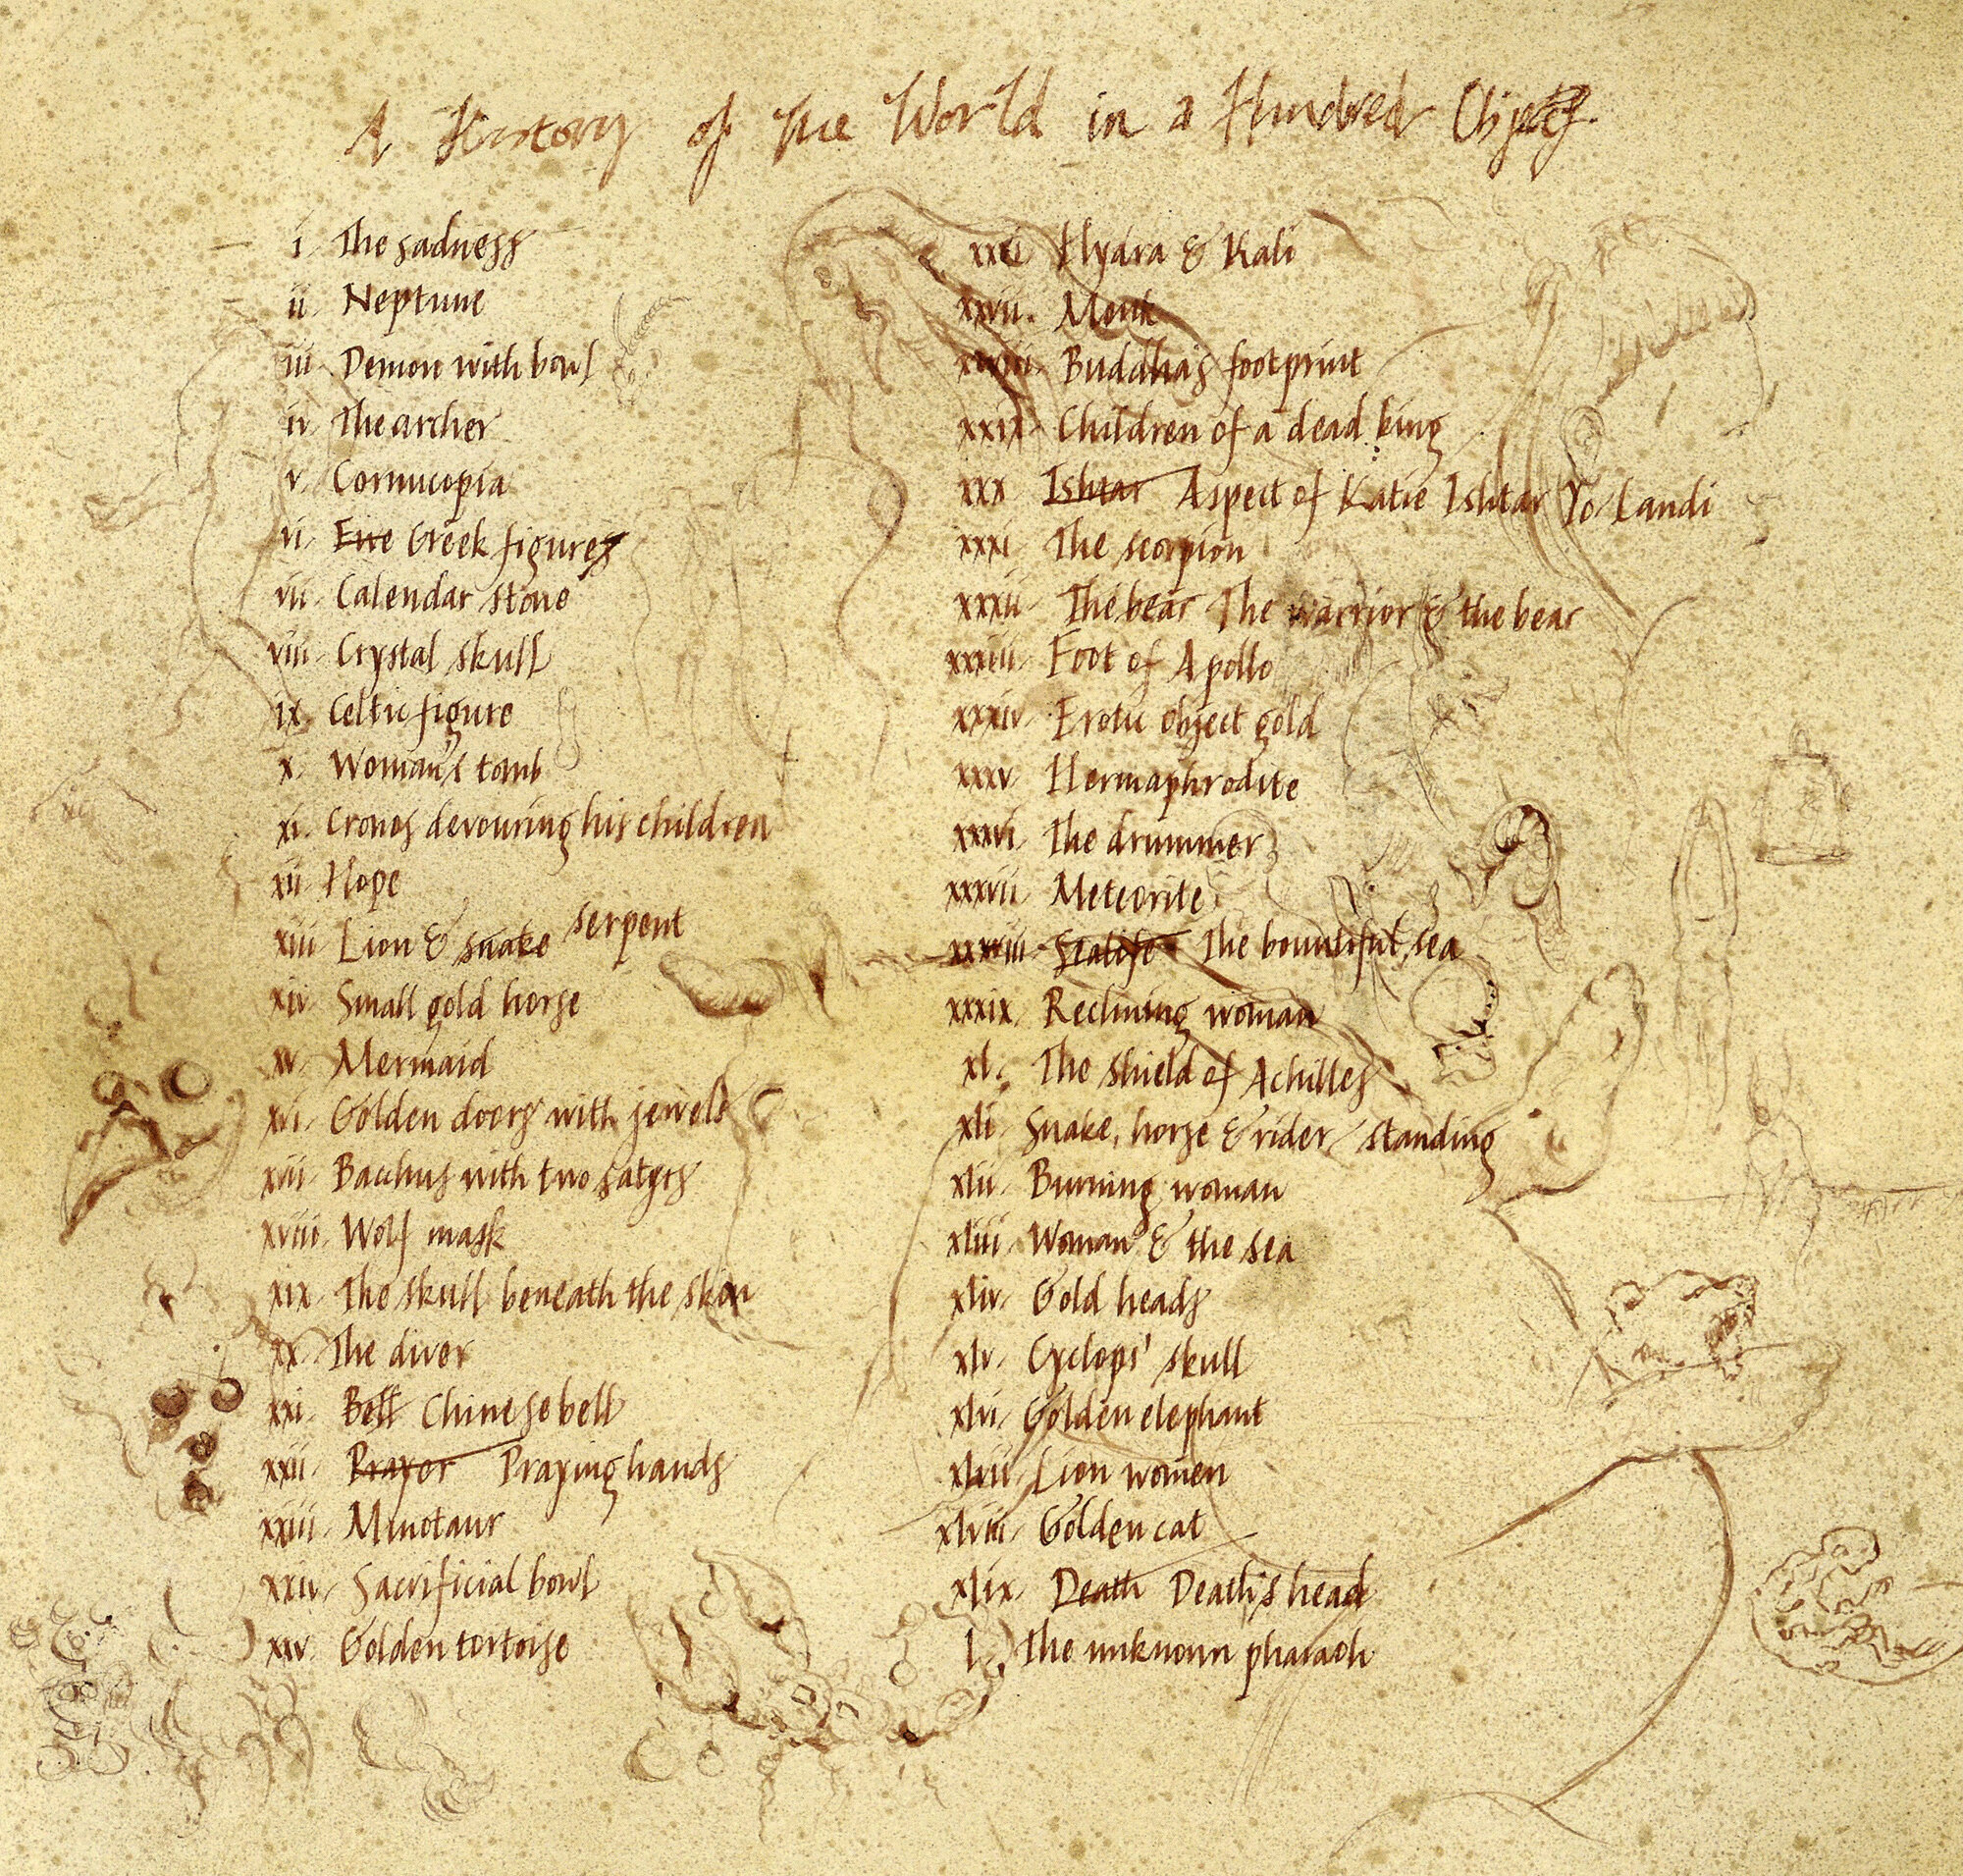 A History of the World in a Hundred Objects.
i. The sadness
ii. Neptune
iii. Demon with bowl
iv. The archer
v. Cornucopia
vi. Five Greek figures
vii. Calendar stone
viii. Crystal skull
ix. Celtic figure
x. Woman's tomb
xi. Cronos devouring his children
xii. Hope
xiii. Lion & snake serpent
xiv. Small gold horse
xv. Mermaid
xvi. Golden doors with jewels
xvii. Bacchus with two satyrs
xviii. Wolf mask
xix. The skull beneath the skin
xx. The diver
xxi. Bell Chinese bell
xxii. Prayer Praying hands
xxiii. Minotaur
xxiv. Sacrificial bowl
xxv. Golden tortoise
Hydra & Kali
xxvii. Monk
xxviii. Buddha's footprint
xxix. Children of a dead king
xxx Ishtar Aspect of Katie Ishtar Yo-landi
xxxi The scorpion
xxxii. The bear The warrior & the bear
xxxiii. Foot of Apollo
xxxiv. Erotic object gold
xxxv. Hermaphrodite
xxxvi. The drummer
xxxvii. Meteorite
xxxviii. Sealife The bountiful sea
xxxix. Reclining woman
xl. The shield of Achilles
xli. Snake, horse & rider / standing
xlii. Burning woman
xliii. Woman & the sea
xliv. Gold heads
xlv. Cyclops' skull
xlvi. Golden elephant
xlvii. Lion women
xlviii. Golden cat
xlix. Death Death's head
l. The unknown pharaoh